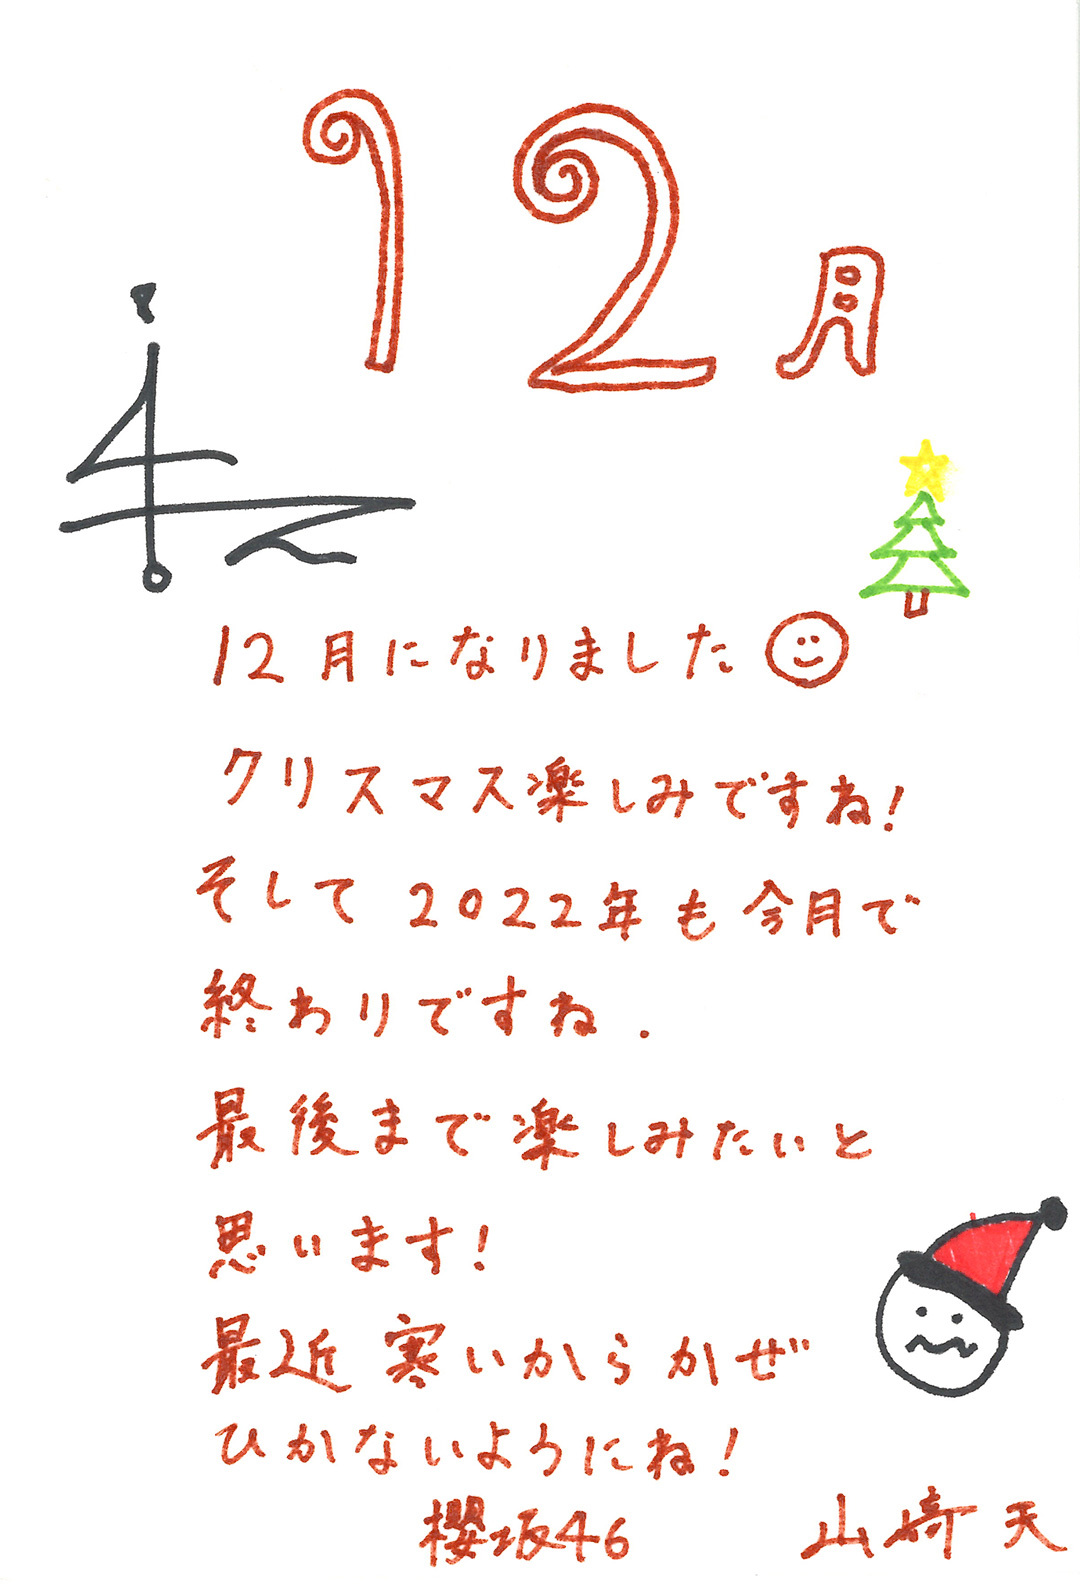 12月
12月になりました
クリスマス楽しみですね!
そして2022年も今月で
終わりですね.
最後まで楽しみたいと
思います!
最近寒いからかぜ
ひかないようにね!
櫻坂46 山﨑天